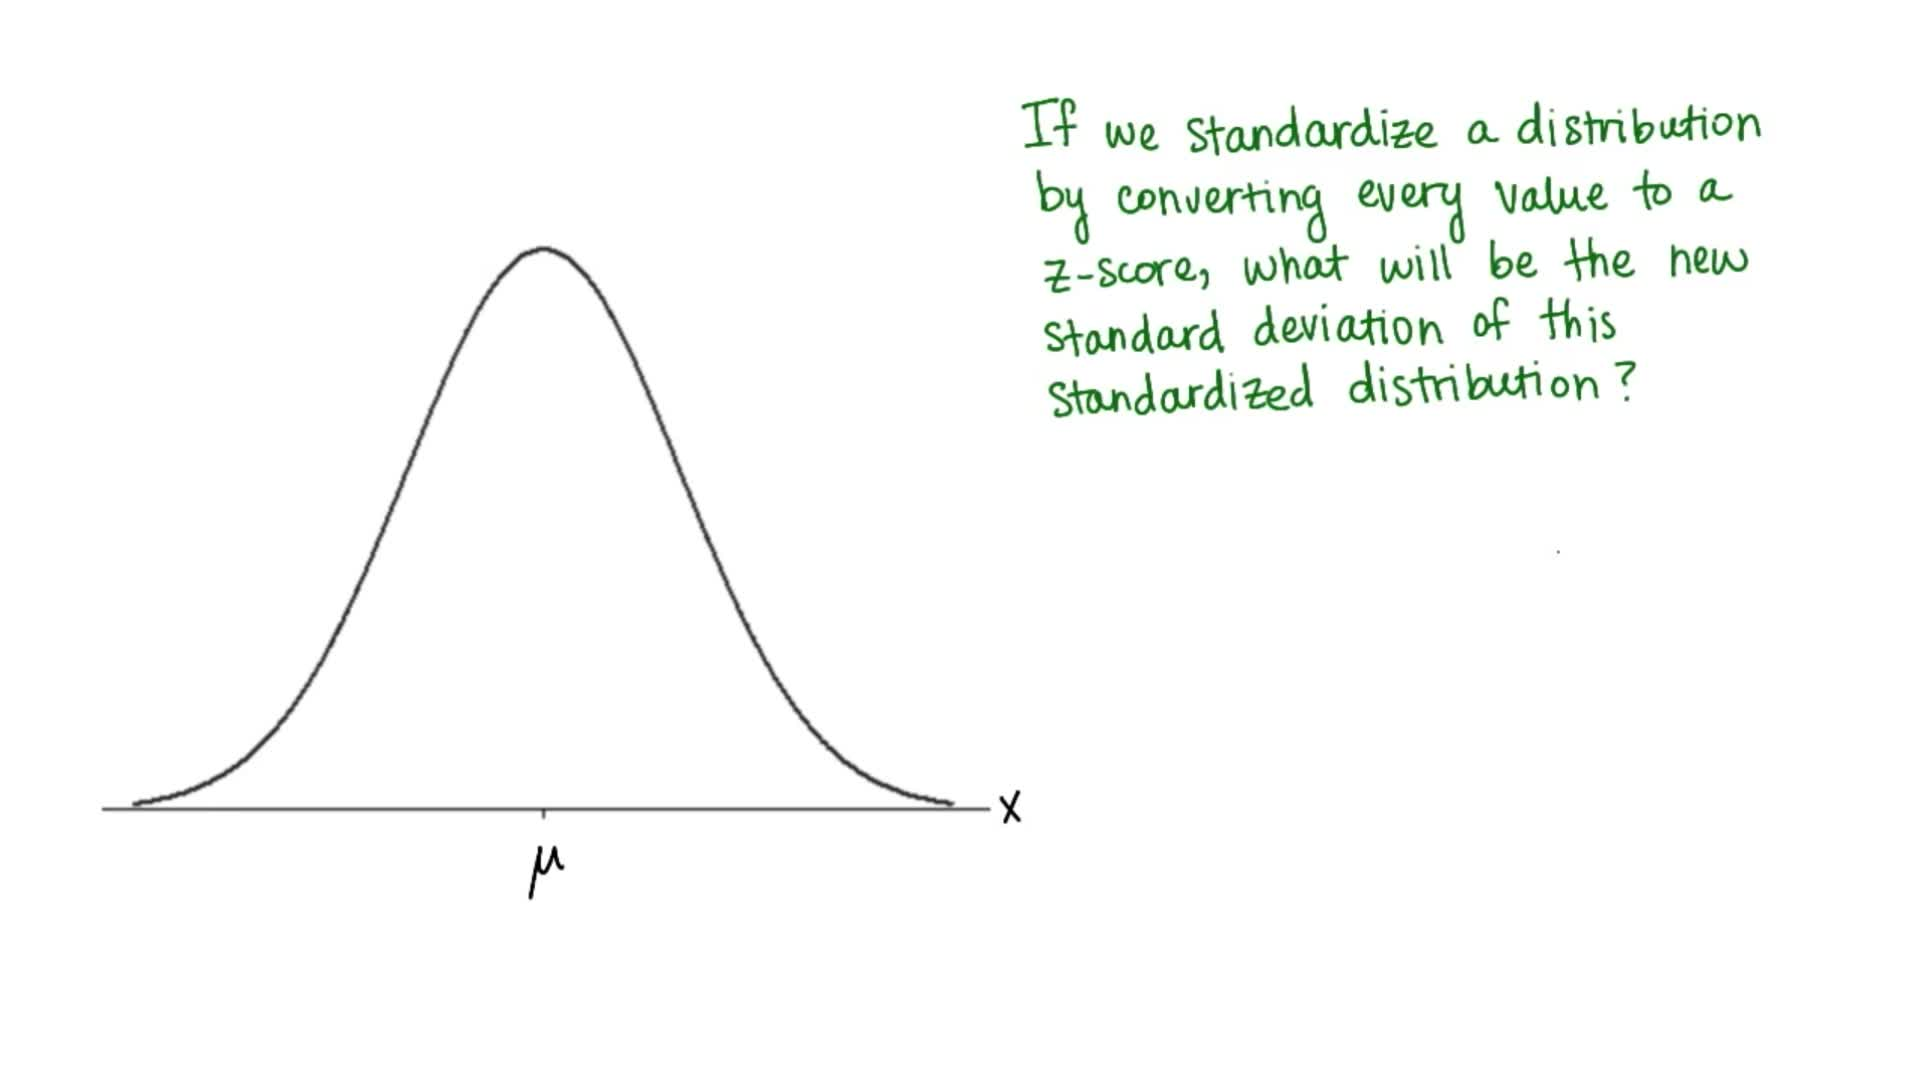 If we standardize a distribution
by converting every value to a
z-score, what will be the new
standard deviation of this
standardized distribution?
x
μ